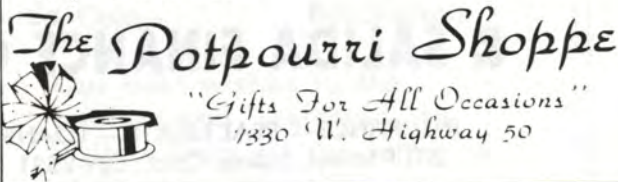 The Potpourri Shoppe
"Gifts For All Occasions"
1330 W. Highway 50